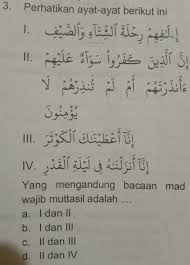 3. Perhatikan ayat-ayat berikut ini
I. إِۦلَٰفِهِمْ رِحْلَةَ ٱلشِّتَآءِ وَٱلصَّيْفِ
II. إِنَّ ٱلَّذِينَ كَفَرُوا۟ سَوَآءٌ عَلَيْهِمْ
ءَأَنذَرْتَهُمْ أَمْ لَمْ تُنذِرْهُمْ لَا
يُؤْمِنُونَ
III. إِنَّآ أَعْطَيْنَٰكَ ٱلْكَوْثَرَ
IV. إِنَّآ أَنزَلْنَٰهُ فِى لَيْلَةِ ٱلْقَدْرِ
Yang mengandung bacaan mad
wajib muttasil adalah ....
a. I dan II
b. I dan III
c. II dan III
d. II dan IV